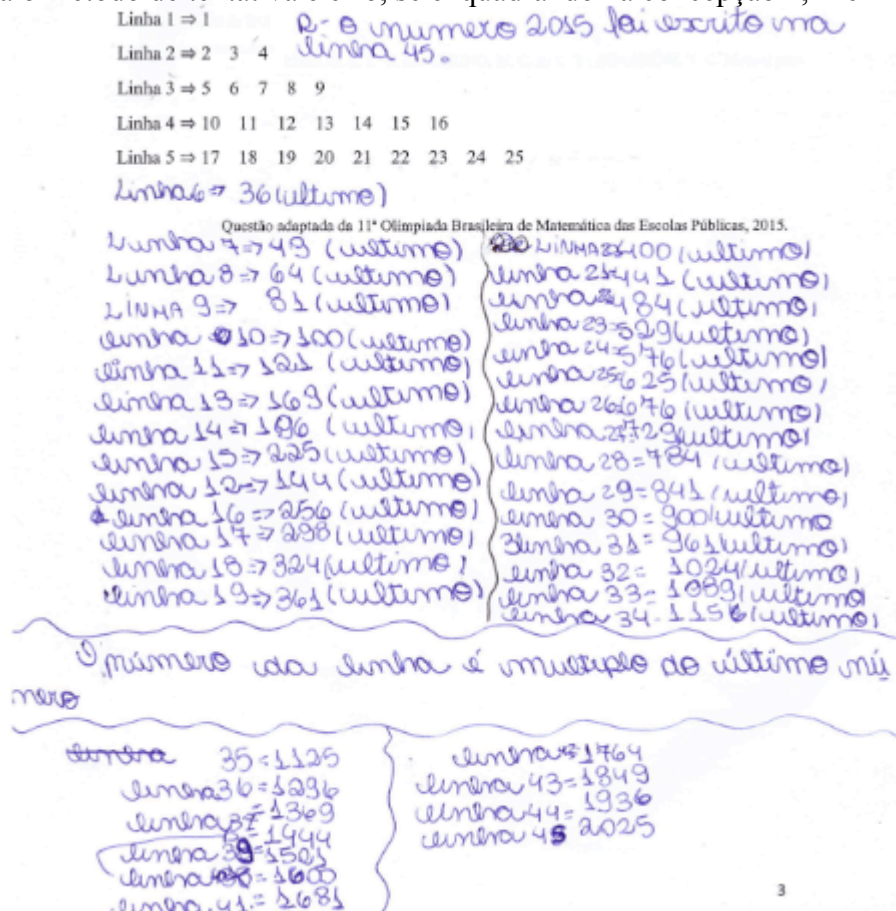 método de tentativa e erro, se enquadrando na concepção
Linha 1 ⇒ 1
R- O numero 2015 foi escrito na
linha 45.
Linha 2 ⇒ 2 3 4
Linha 3 ⇒ 5 6 7 8 9
Linha 4 ⇒ 10 11 12 13 14 15 16
Linha 5 ⇒ 17 18 19 20 21 22 23 24 25
Linha 6 ⇒ 36 (ultimo)
Questão adaptada da 11ª Olimpíada Brasileira de Matemática das Escolas Públicas, 2015.
Linha 7 ⇒ 49 (ultimo)
Linha 8 ⇒ 64 (ultimo)
LINHA 9 ⇒ 81 (ultimo)
linha 10 ⇒ 100 (ultimo)
linha 11 ⇒ 121 (ultimo)
linha 13 ⇒ 169 (ultimo)
linha 14 ⇒ 196 (ultimo)
linha 15 ⇒ 225 (ultimo)
linha 12 ⇒ 144 (ultimo)
linha 16 ⇒ 256 (ultimo)
linha 17 ⇒ 298 (ultimo)
linha 18 ⇒ 324 (ultimo)
linha 19 ⇒ 361 (ultimo)
LINHA 400 (ultimo)
linha 21 441 (ultimo)
linha 484 (ultimo)
linha 23=529 (ultimo)
linha 24=576 (ultimo)
linha 25 625 (ultimo)
linha 26 676 (ultimo)
linha 27 729 (ultimo)
linha 28=784 (ultimo)
linha 29=841 (ultimo)
linha 30=900 (ultimo
linha 31=961 (ultimo)
linha 32= 1024 (ultimo)
linha 33- 1089 (ultimo
linha 34- 1156 (ultimo)
O número da linha é multiplo do último nú
mero
linha 35=1125
linha 36=1296
linha 37=1369
=1444
linha 39=1501
linha =1600
linha 41=1681
linha =1764
linha 43=1849
linha 44=1936
linha 45 2025
3